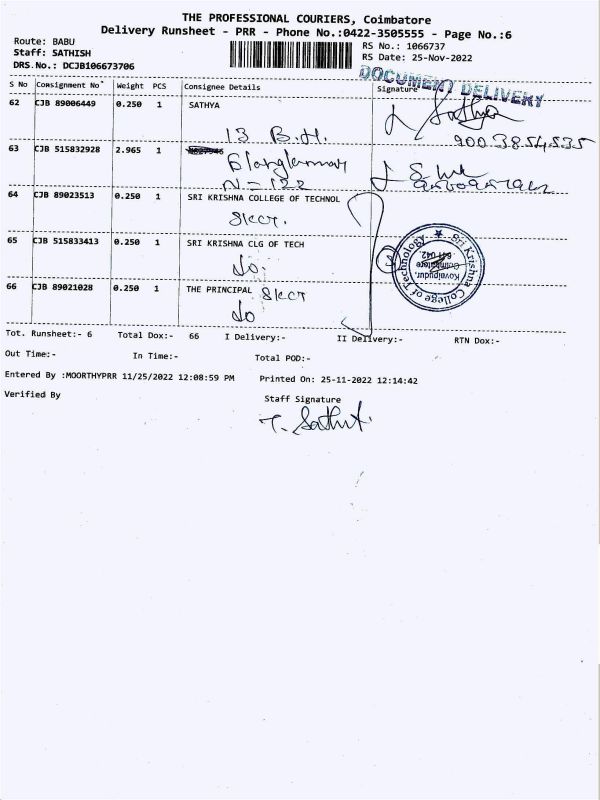 THE PROFESSIONAL COURIERS, Coimbatore
Delivery Runsheet - PRR - Phone No.:0422-3505555 - Page No.:6
Route: BABU
Staff: SATHISH
DRS.No.: DCJB106673706
RS No.: 1066737
RS Date: 25-Nov-2022
DOCUMENT DELIVERY
S No Consignment No Weight PCS Consignee Details Signature
62 CJB 89006449 0.250 1 SATHYA
Sathya
13 B.H.
9003854535
63 CJB 515832928 2.965 1
N=122
64 CJB 89023513 0.250 1 SRI KRISHNA COLLEGE OF TECHNOL
Skct.
65 CJB 515833413 0.250 1 SRI KRISHNA CLG OF TECH
do
66 CJB 89021028 0.250 1 THE PRINCIPAL Skct
do
Sri Krishna College of Technology ★
Kovaipudur,
Coimbatore
641 042
Tot. Runsheet:- 6 Total Dox:- 66 I Delivery:- II Delivery:- RTN Dox:-
Out Time:- In Time:- Total POD:-
Entered By :MOORTHYPRR 11/25/2022 12:08:59 PM Printed On: 25-11-2022 12:14:42
Verified By Staff Signature
T. Sathish